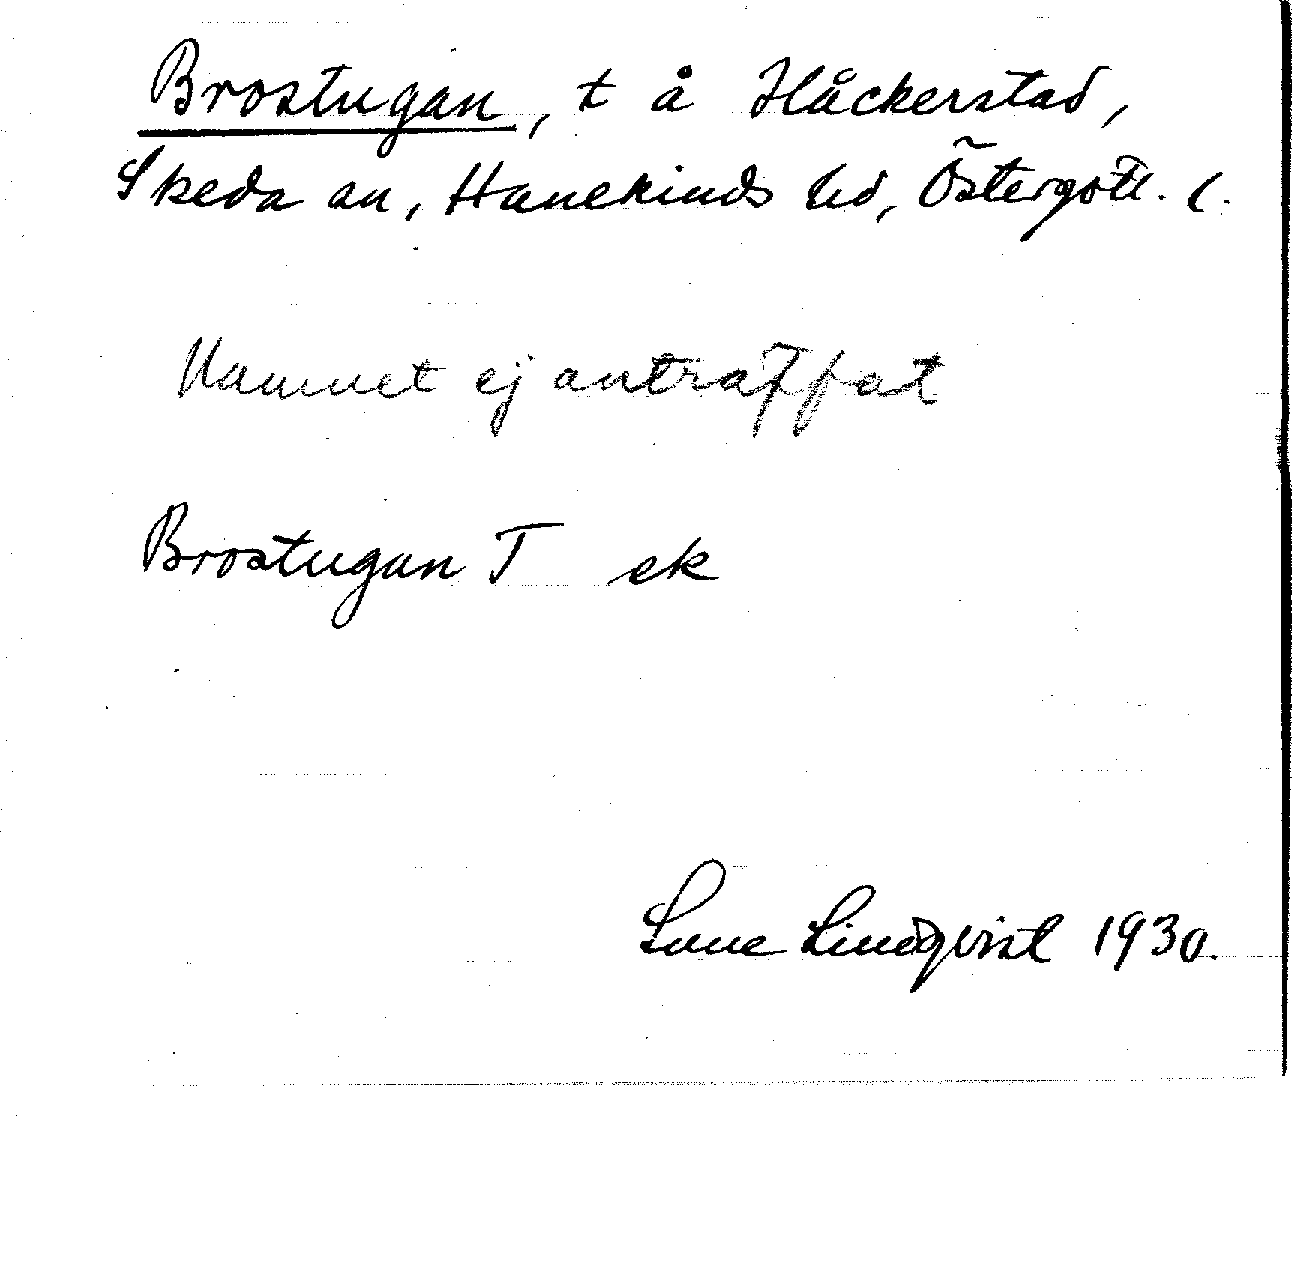 Brostugan, t å Håckerstad,
Skeda sn, Hanekinds hd, Östergötl. l.
Namnet ej anträffat
Brostugan T ek
Sune Lindqvist 1930.